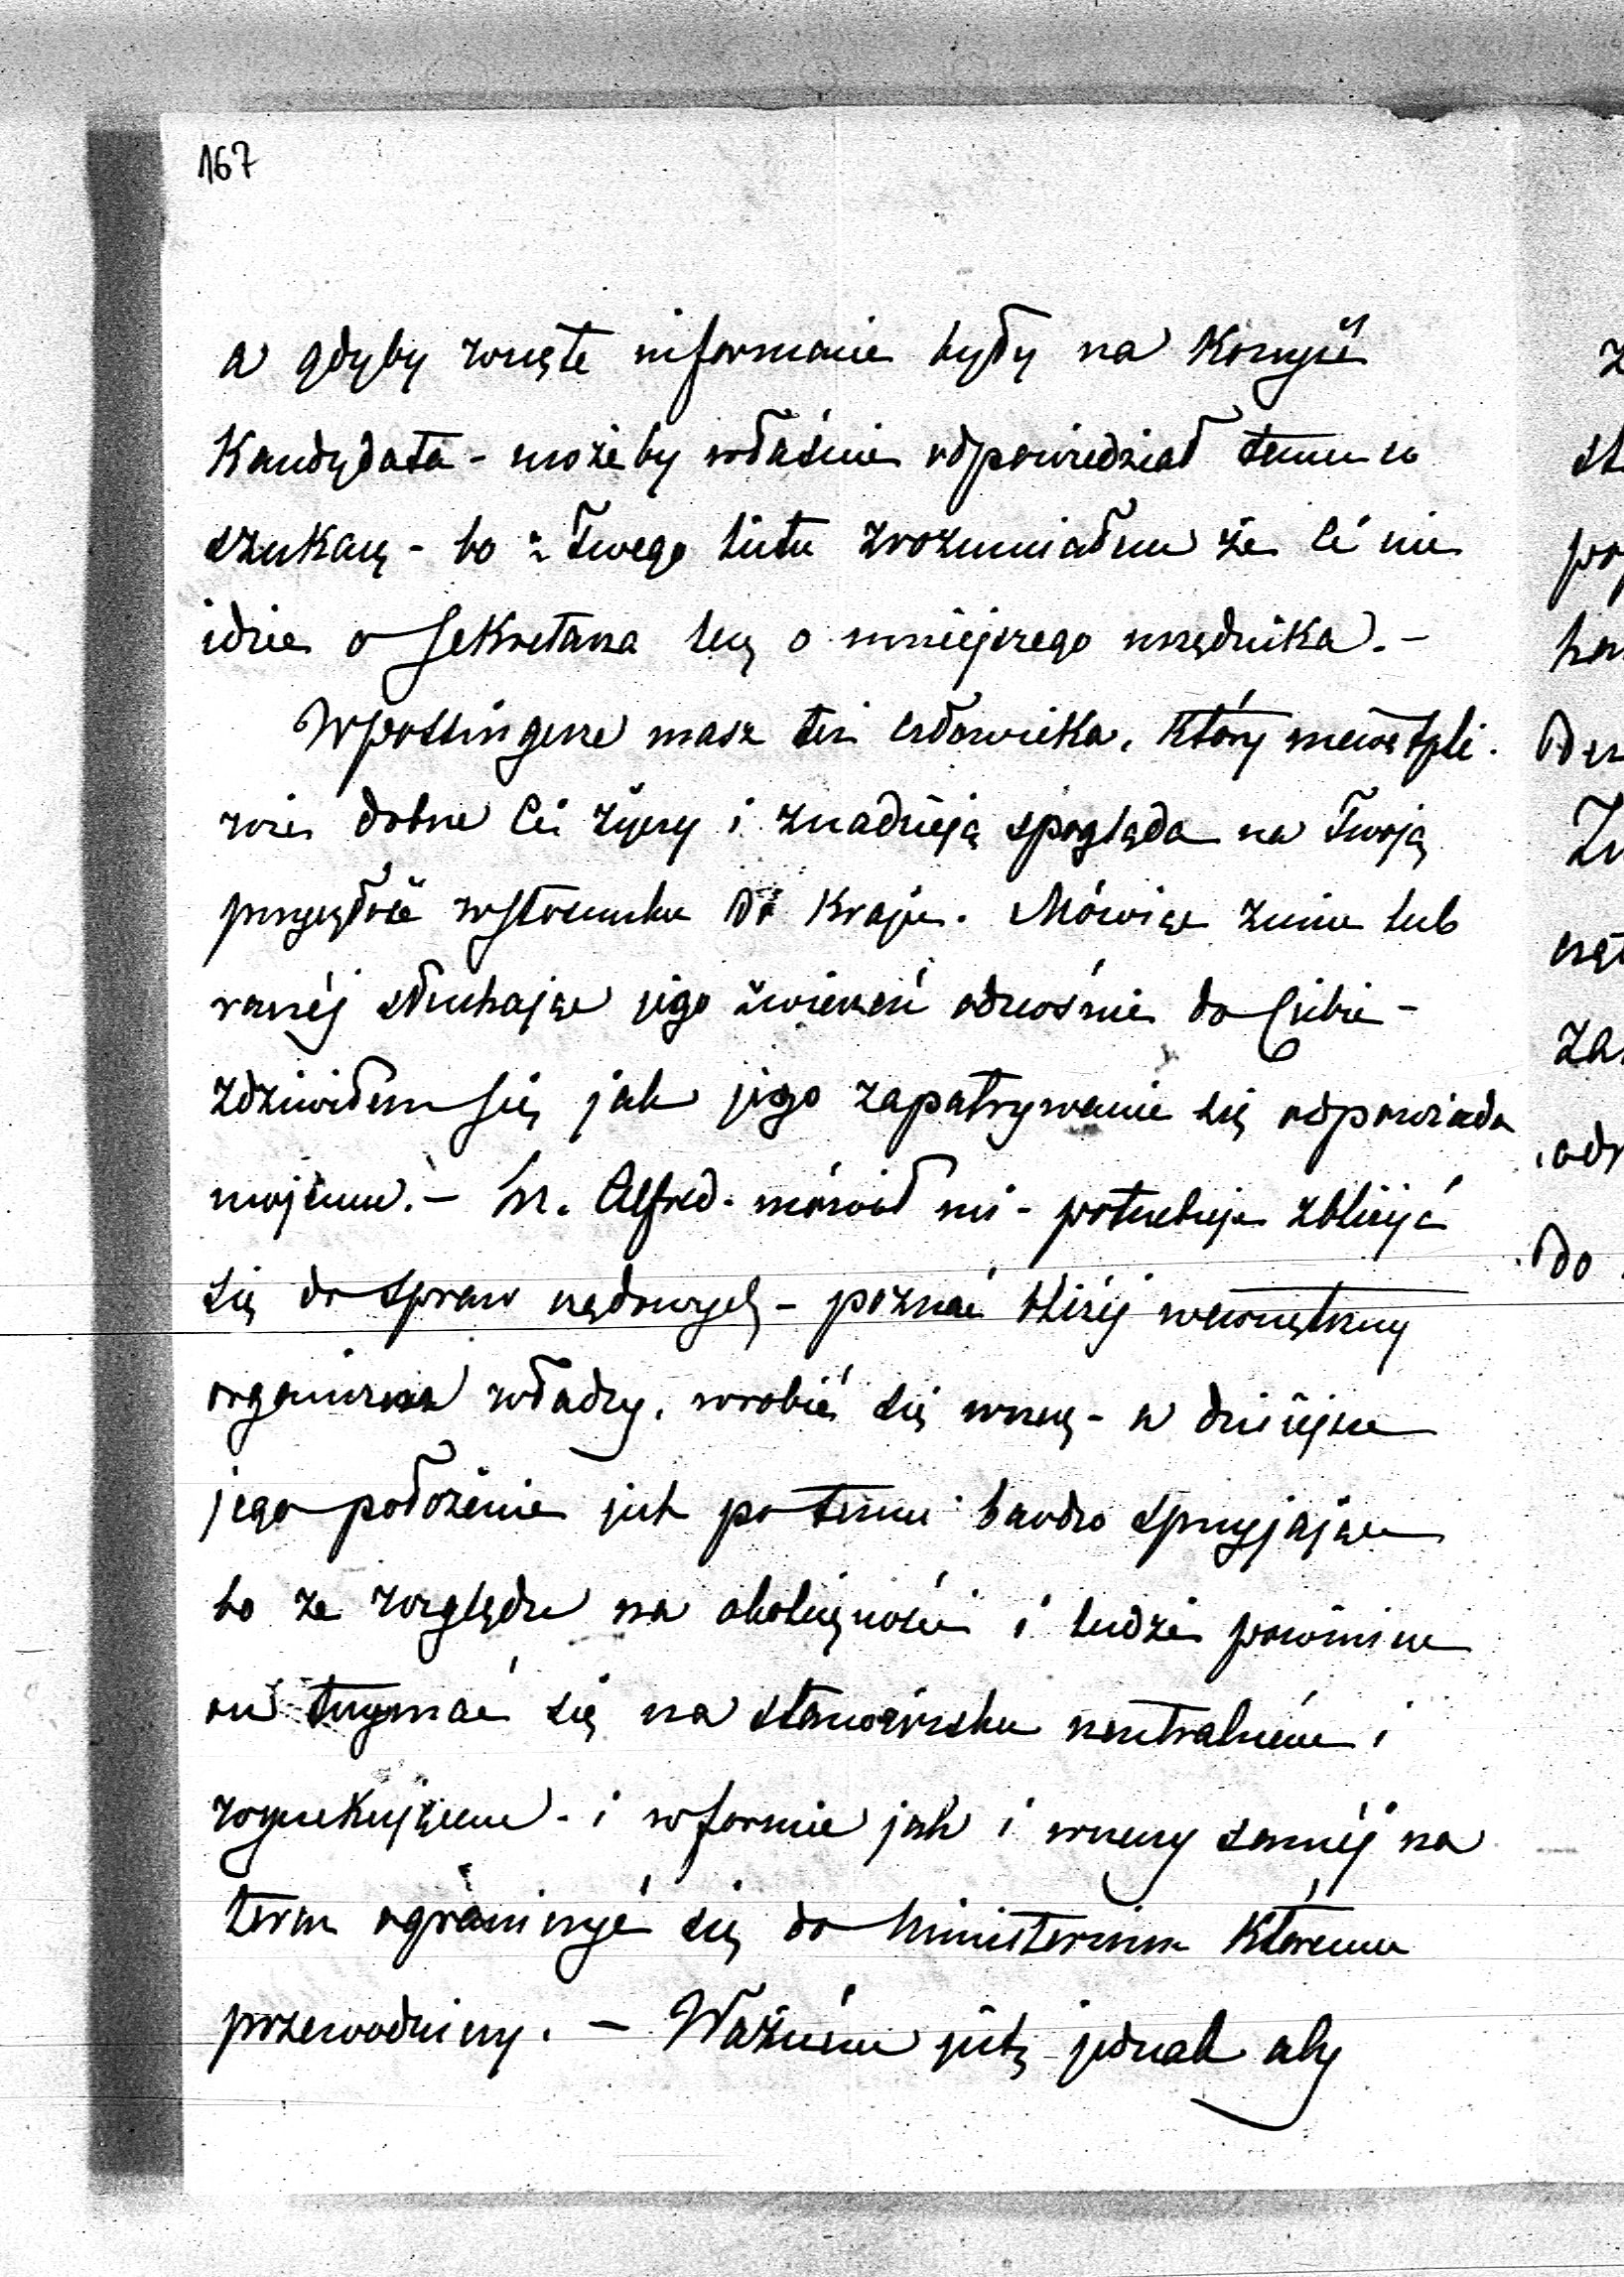 167
a gdyby wzięte informacie były na Korzyść
Kandydata - może by właśnie odpowiedział temu co
szukasz - bo z Twego listu zrozumiałem że Ci nie
idzie o Sekretarza lecz o mniejszego urzędnika. -
W possingerze masz też człowieka, Który niewątpli-
wie dobrze Ci życzy i z nadzieją spogląda na Twoją
przyszłość w stosunku do Kraju. Mówiąc z nim lub
raczéj słuchając jego zwierzeń odnośnie do Ciebie -
zdziwiłem się jak jego zapatrywanie się odpowiada
mojemu. - Hr. Alfred - mówił mi - potrzebuje zbliżyć
się do spraw rządowych - poznać bliżéj wewnętrzny
organizm władzy, wrobić się w nią - a dzisiejsze
jego położenie jest po temu bardzo sprzyjające
bo ze względu na okoliczności i ludzi powinien
on trzymać się na stanowisku neutralném i
wyczekującem - i w formie jak i w rzeczy saméj na
teraz ograniczyć się do Ministerium Któremu
przewodniczy. - Ważném jest jednak aby